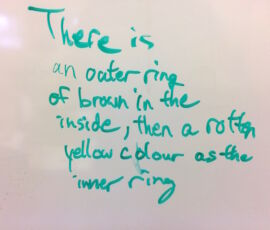 There is
an outer ring
of brown in the
inside, then a rotten
yellow colour as the
inner ring